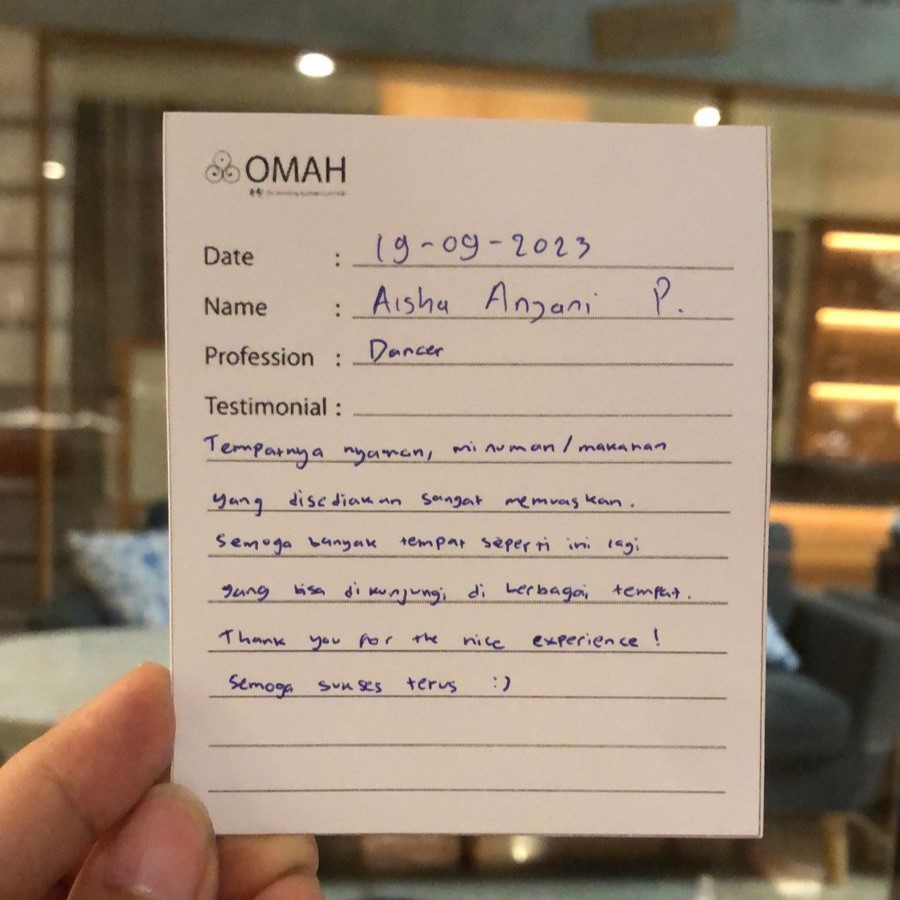 OMAH
Date : 19-09-2023
Name : Aisha Anjani P.
Profession : Dancer
Testimonial :
Tempatnya nyaman, minuman/makanan
yang disediakan sangat memuaskan.
Semoga banyak tempat seperti ini lagi
yang bisa dikunjungi di berbagai tempat.
Thank you for the nice experience!
Semoga sukses terus :)